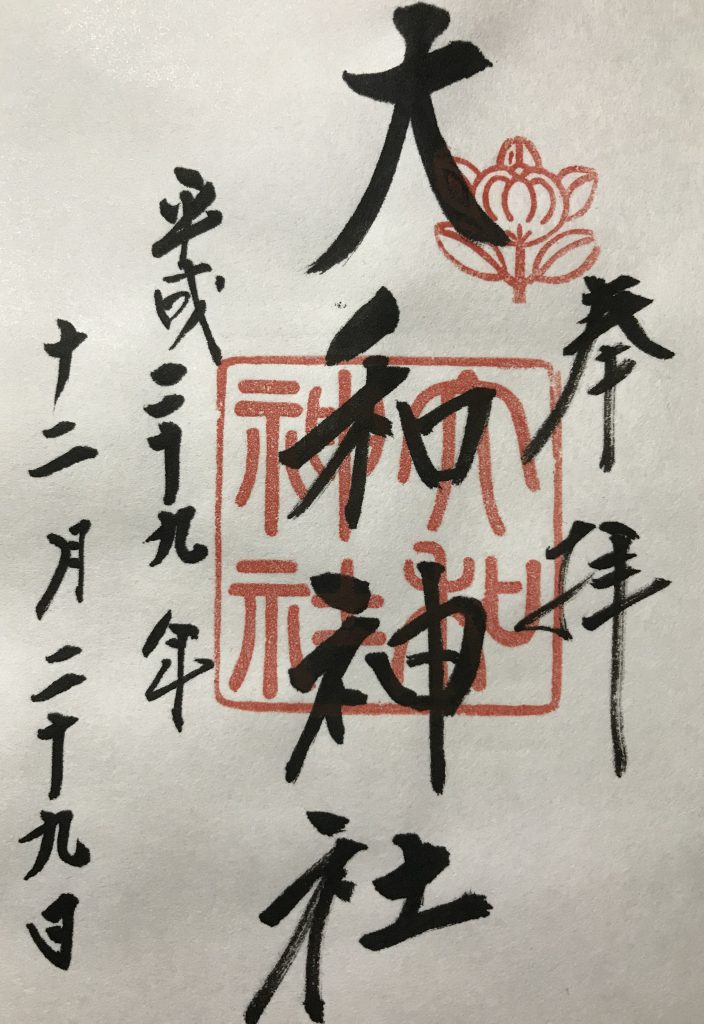 奉拝
大和神社
大和神社
平成二十九年
十二月二十九日